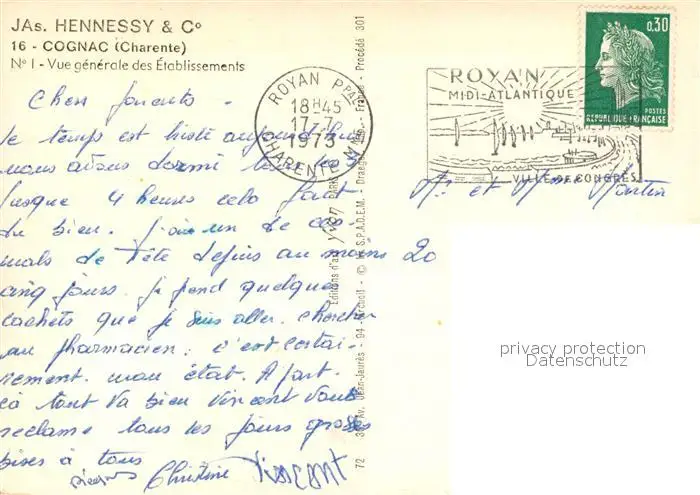 JAs. HENNESSY & Cº
16 - COGNAC (Charente)
Nº I - Vue générale des Établissements
ROYAN PPAL
18H45
17-7
1973
CHARENTE-MME
ROYAN
MIDI-ATLANTIQUE
VILLE DE CONGRÈS
0,30
POSTES
RÉPUBLIQUE FRANÇAISE
Chers parents
le temps est triste aujourd'hui
nous avons dormi tous les 3
jusque 4 heures cela fait
du bien. J'ai un de ces
mals de tête depuis au moins
cinq jours. je prend quelque
cachets que je suis aller chercher
au pharmacien : c'est certai-
nement mon état. A part
çà tout va bien Vincent vous
reclame tous les jours grosses
bises à tous
Christine Vincent
Mr et Mme Martin
20
Editions d'art Yvon PARIS
36, Av. Jean-Jaurès - 94 - Arcueil - © S.P.A.D.E.M. - Draeger - France - Procédé 301
72
privacy protection
Datenschutz